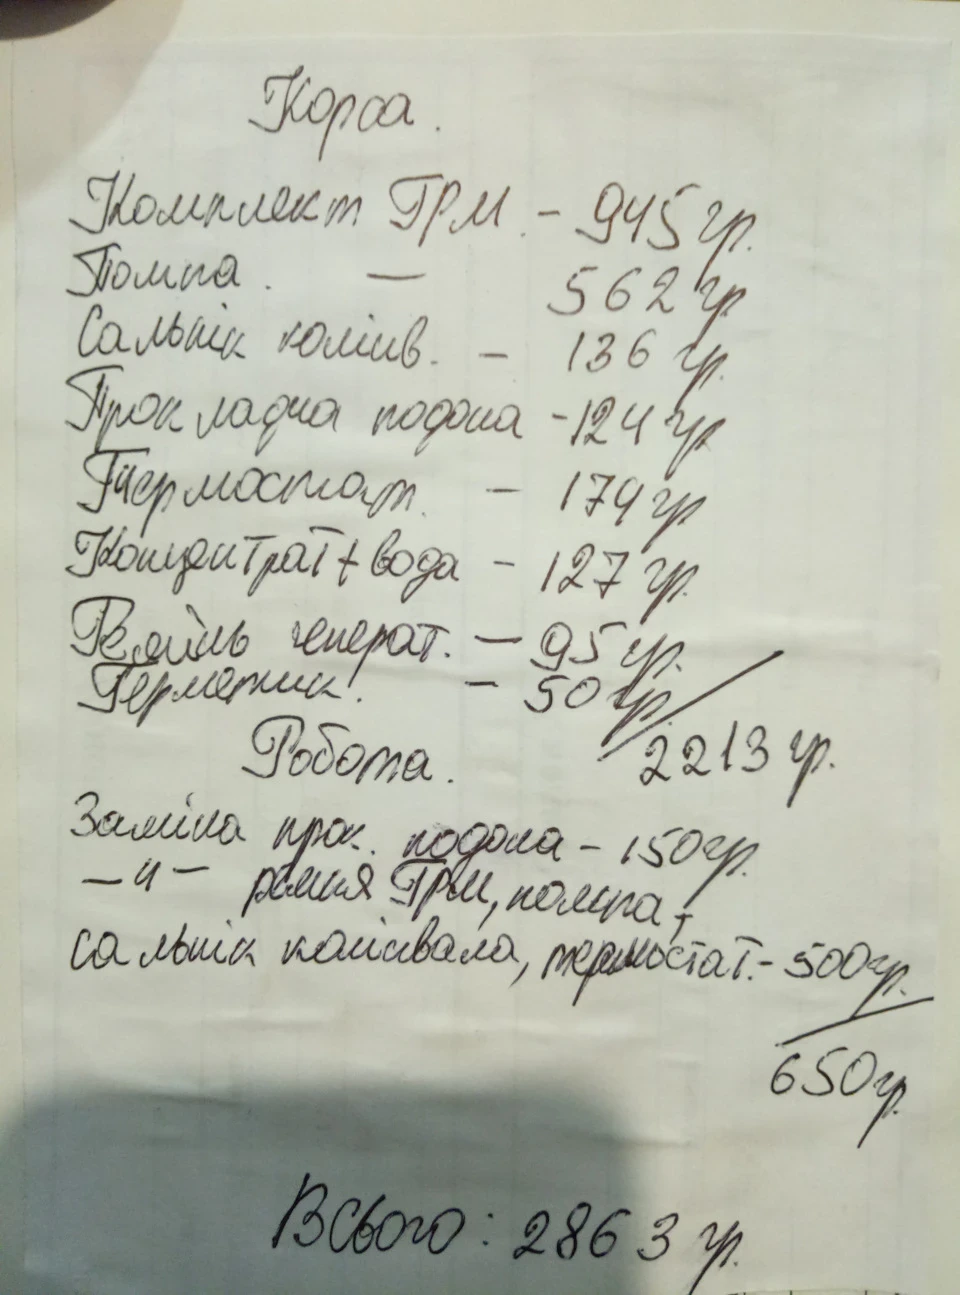 Корса.
Комплект ГРМ. - 945 гр.
Помпа. - 562 гр
Сальнік колінв. - 136 гр.
Прокладка подона - 124 гр
Термостат. - 174 гр
Концентрат + вода - 127 гр.
Ремінь генерат. - 95 гр.
Герметик. - 50 гр
2213 гр.
Робота.
Заміна прок. подона - 150 гр.
-"- ремня ГРМ, помпа,
сальнік колінвала, термостат. - 500 гр.
650 гр.
Всього: 2863 гр.